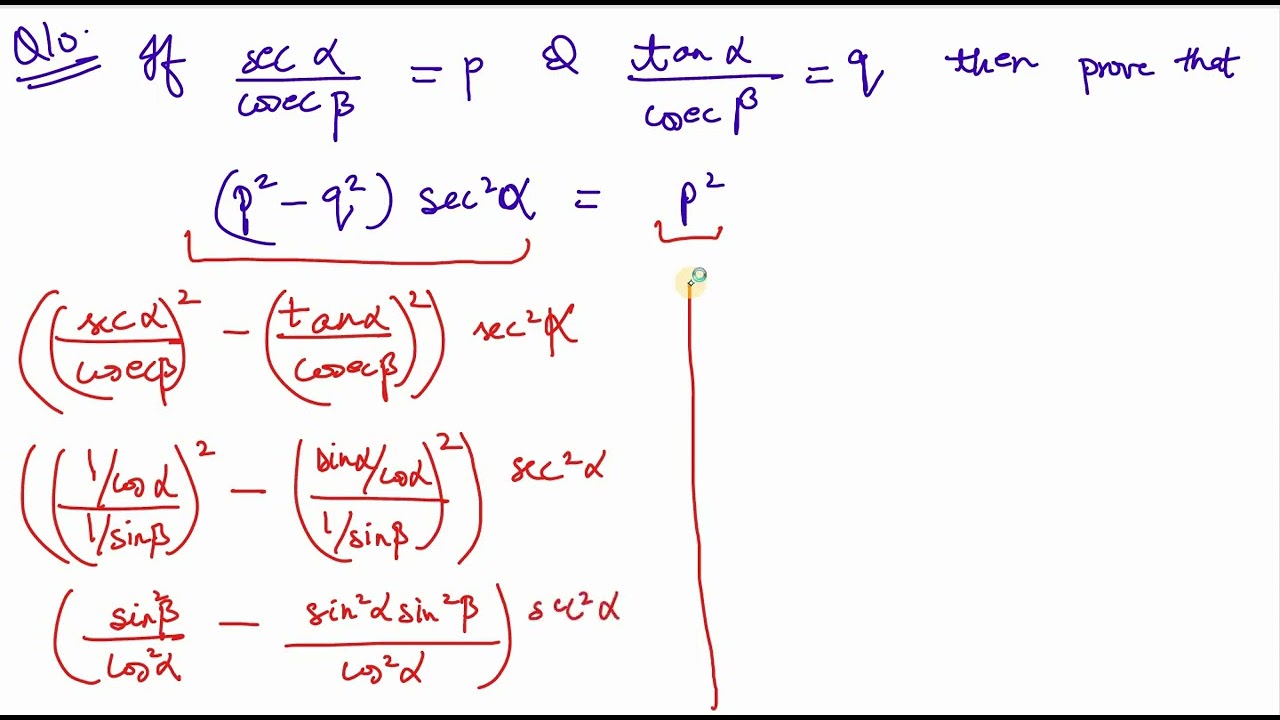 Q10. If sec α / cosec β = p & tan α / cosec β = q then prove that
(p² − q²) sec²α = p²
((sec α / cosec β)² − (tan α / cosec β)²) sec²α
((1/cos α / 1/sin β)² − (sin α/cos α / 1/sin β)²) sec²α
(sin²β / cos²α − sin²α sin²β / cos²α) sec²α